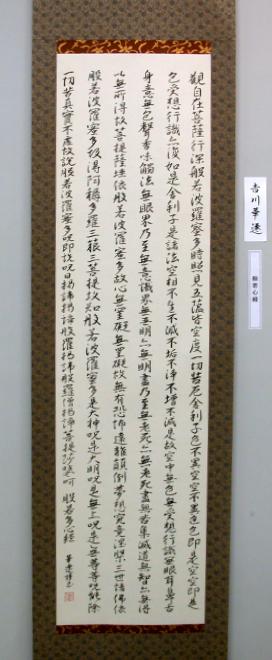 觀自在菩薩行深般若波羅蜜多時照見五蘊皆空度一切苦厄舍利子色不異空空不異色色即是空空即是
色受想行識亦復如是舍利子是諸法空相不生不滅不垢不淨不增不減是故空中無色無受想行識無眼耳鼻舌
身意無色聲香味觸法無眼界乃至無意識界無無明亦無無明盡乃至無老死亦無老死盡無苦集滅道無智亦無得
以無所得故菩提薩埵依般若波羅蜜多故心無罣礙無罣礙故無有恐怖遠離顛倒夢想究竟涅槃三世諸佛依
般若波羅蜜多故得阿耨多羅三藐三菩提故知般若波羅蜜多是大神呪是大明呪是無上呪是無等等呪能除
一切苦真實不虚故說般若波羅蜜多呪即說呪曰揭諦揭諦般羅揭諦般羅僧揭諦菩提沙婆呵 般若多心經
般若心経